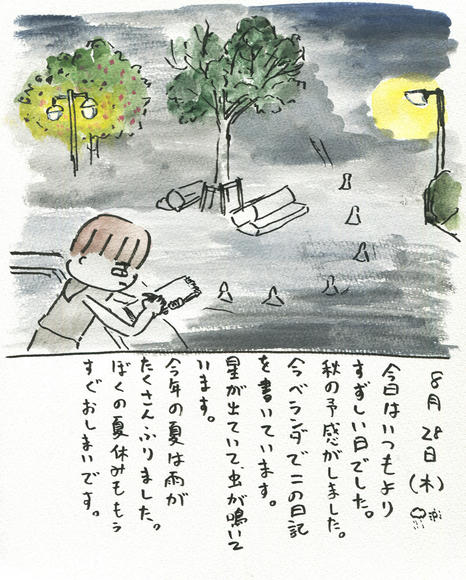 8月28日(木)
今日はいつもより
すずしい日でした。
秋の予感がしました。
今ベランダでこの日記
を書いています。
星が出ていて、虫が鳴いて
います。
今年の夏は雨が
たくさんふりました。
ぼくの夏休みももう
すぐおしまいです。